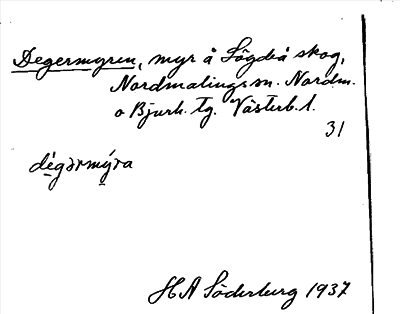 Degermyren, myr å Lögdeå skog,
Nordmalings sn. Nordm.
o Bjurh. tg. Västerb. l.
31
dég̣ərmýra
H A Söderberg 1937